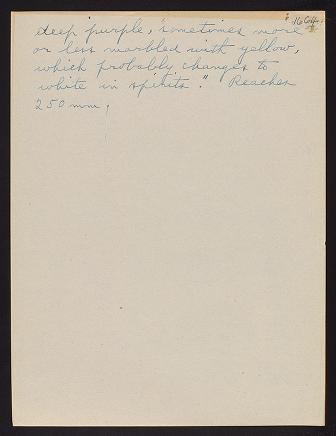 deep purple, sometimes more
or less marbled with yellow,
which probably changes to
white in spirits." Reaches
250 mm.